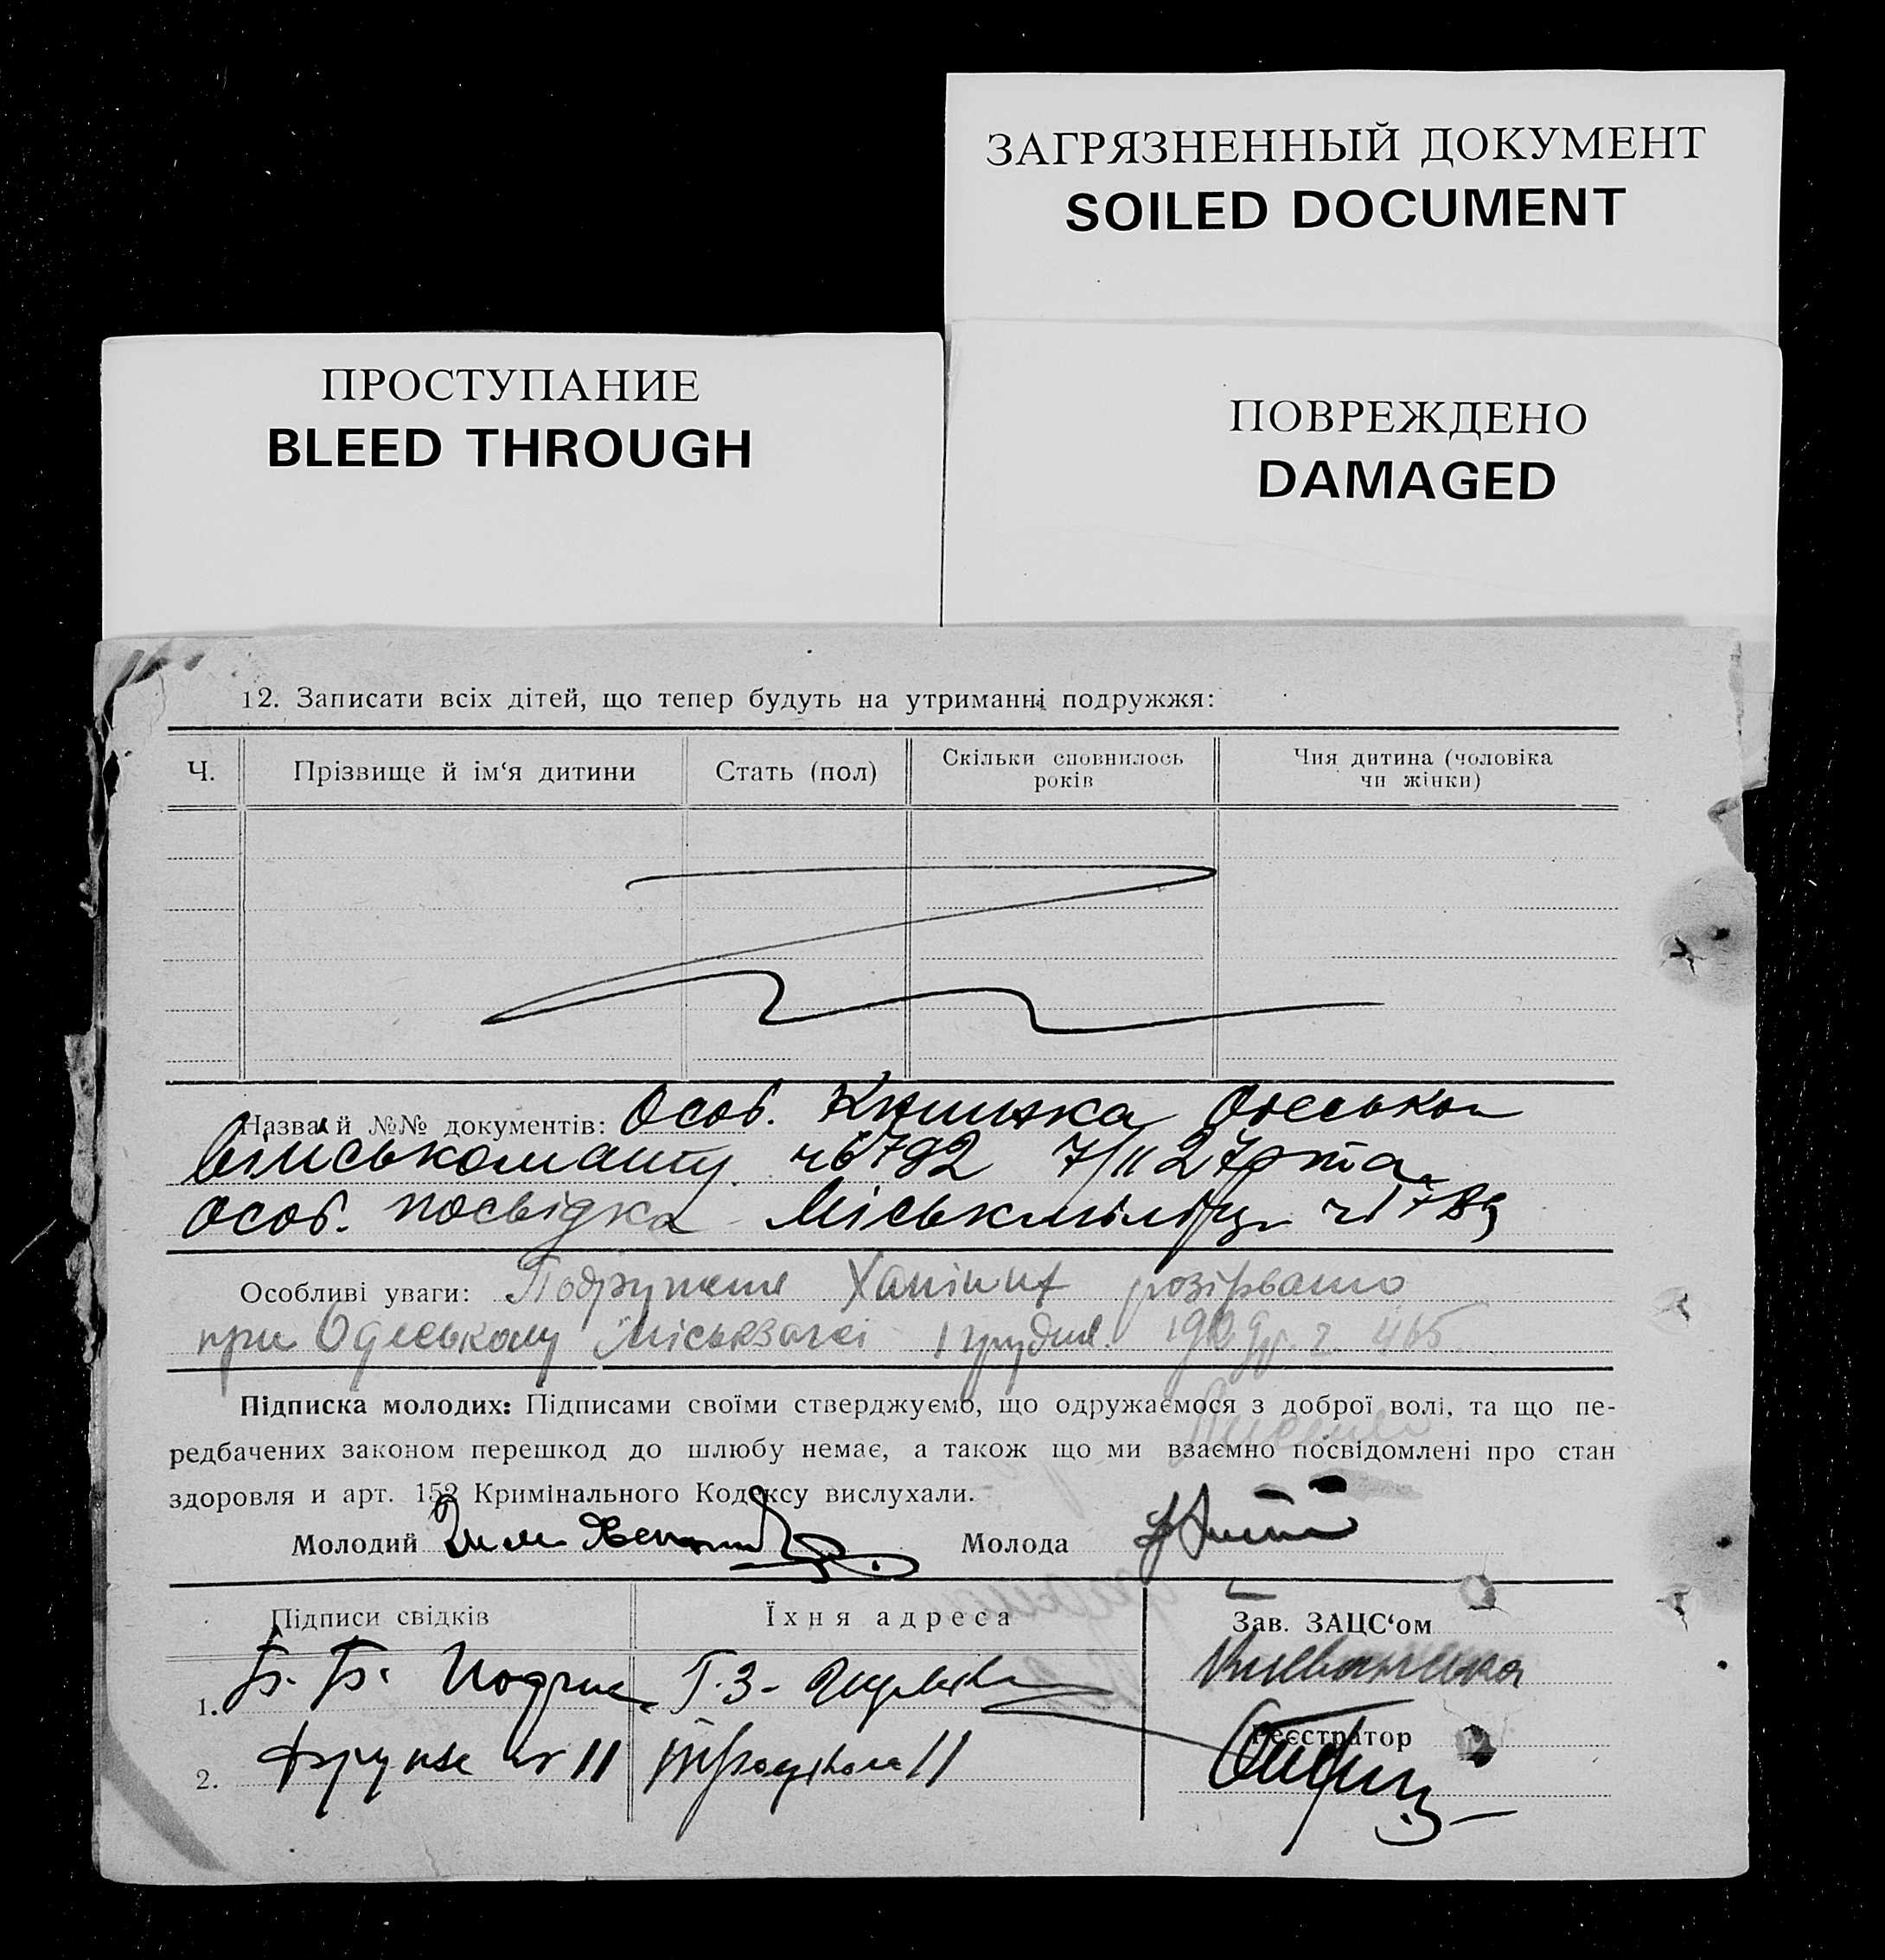 ЗАГРЯЗНЕННЫЙ ДОКУМЕНТ
SOILED DOCUMENT
ПРОСТУПАНИЕ
BLEED THROUGH
ПОВРЕЖДЕНО
DAMAGED
12. Записати всіх дітей, що тепер будуть на утриманні подружжя:
Ч. Прізвище й ім‘я дитини Стать (пол) Скільки сповнилось років Чия дитина (чоловіка чи жінки)
Назва й №№ документів: Особ. Книжка Одеськ
військомату ч6792 7/II 27р та
особ. посвідка Міськміліц ч1789
Особливі уваги: Подружжя розірвано
при Одеському Міськзагсі 1 грудня 1929р. ч. 465
Підписка молодих: Підписами своїми стверджуємо, що одружаємося з доброї волі, та що пе-
редбачених законом перешкод до шлюбу немає, а також що ми взаємно посвідомлені про стан
здоровля и арт. 152 Кримінального Кодексу вислухали.
Молодий Молода
Підписи свідків Їхня адреса Зав. ЗАЦС‘ом
1. Б. Б.
Реєстратор
2. 11 11